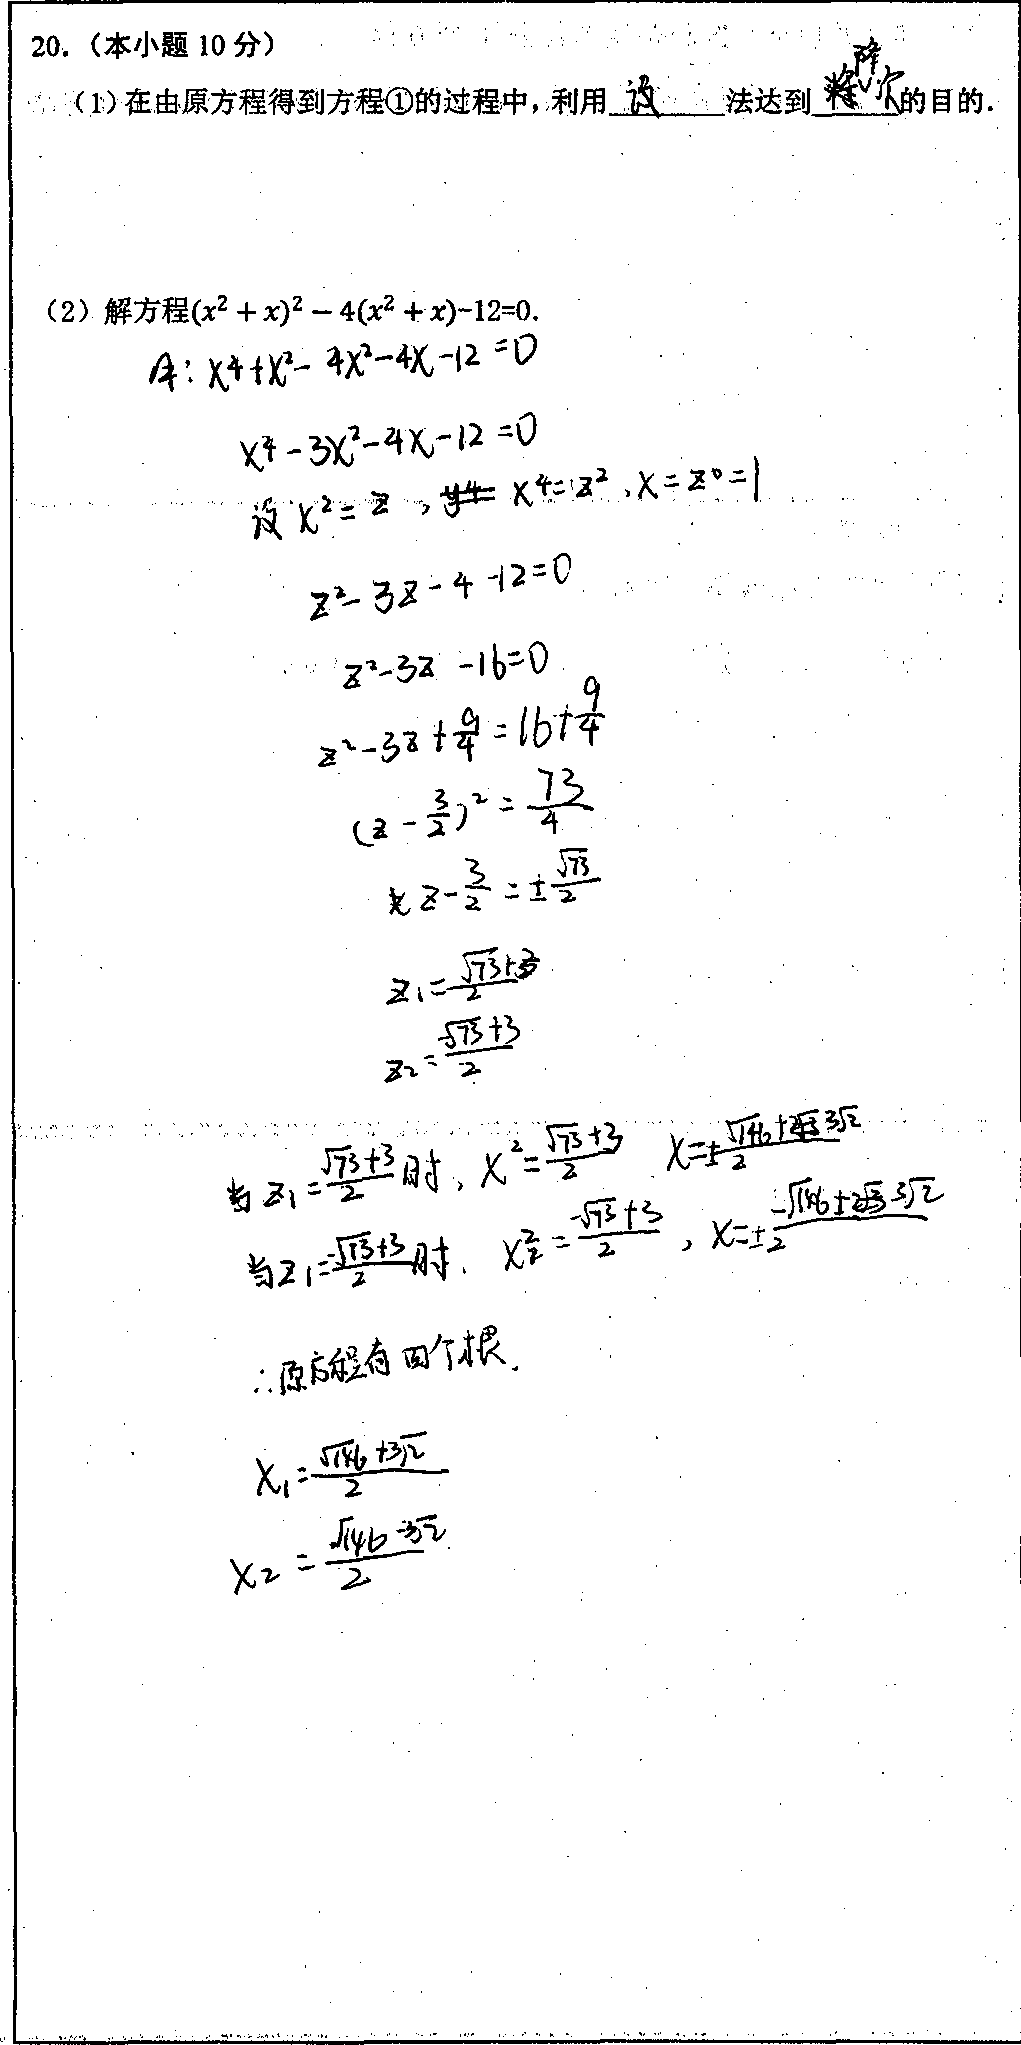 20.（本小题 10 分）
（1）在由原方程得到方程①的过程中，利用 设 法达到 降次 的目的．
（2）解方程(x² + x)² − 4(x² + x)-12=0.
x⁴+x²-4x²-4x-12=0
x⁴-3x²-4x-12=0
设 x²=z, x⁴=z², x=z⁰=1
z²-3z-4-12=0
z²-3z-16=0
z²-3z+9/4=16+9/4
(z-3/2)²=73/4
z-3/2=±√73/2
z₁=(√73+3)/2
z₂=(-√73+3)/2
当z₁=(√73+3)/2时, x²=(√73+3)/2 x=±(√146+3√2)/2
当z₁=(-√73+3)/2时, x²=(-√73+3)/2, x=±(-√146+3√2)/2
∴原方程有四个根.
x₁=(√146+3√2)/2
x₂=(√146-3√2)/2